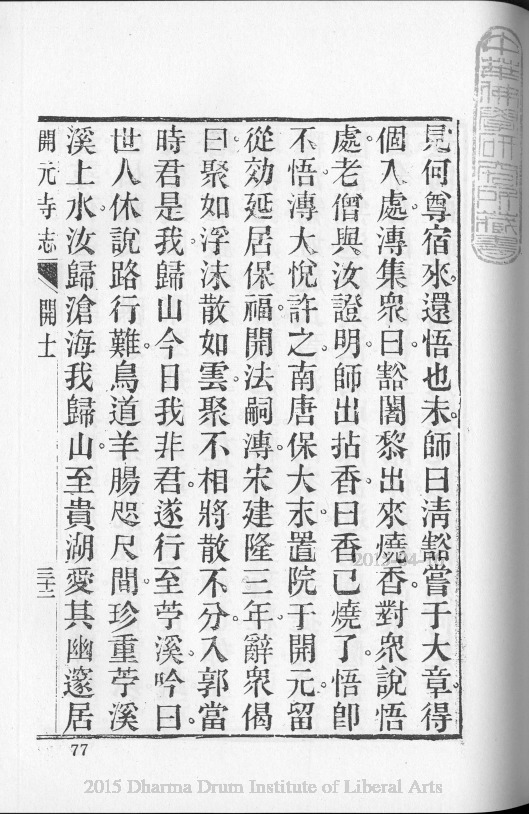 見何尊宿來還悟也未師曰清豁嘗于大章得
個入處漙集衆曰豁闍黎出來燒香對衆說悟
處老僧與汝證明師出拈香曰香已燒了悟卽
不悟漙大悅許之南唐保大末置院于開元留
從効延居保福開法嗣漙宋建隆三年辭衆偈
曰聚如浮沫散如雲聚不相將散不分入郭當
時君是我歸山今日我非君遂行至苧溪吟曰
世人休說路行難鳥道羊腸咫尺間珍重苧溪
溪上水汝歸滄海我歸山至貴湖愛其幽邃居
開元寺志 開士 三十二
77
中華佛學研究所藏書
2015 Dharma Drum Institute of Liberal Arts